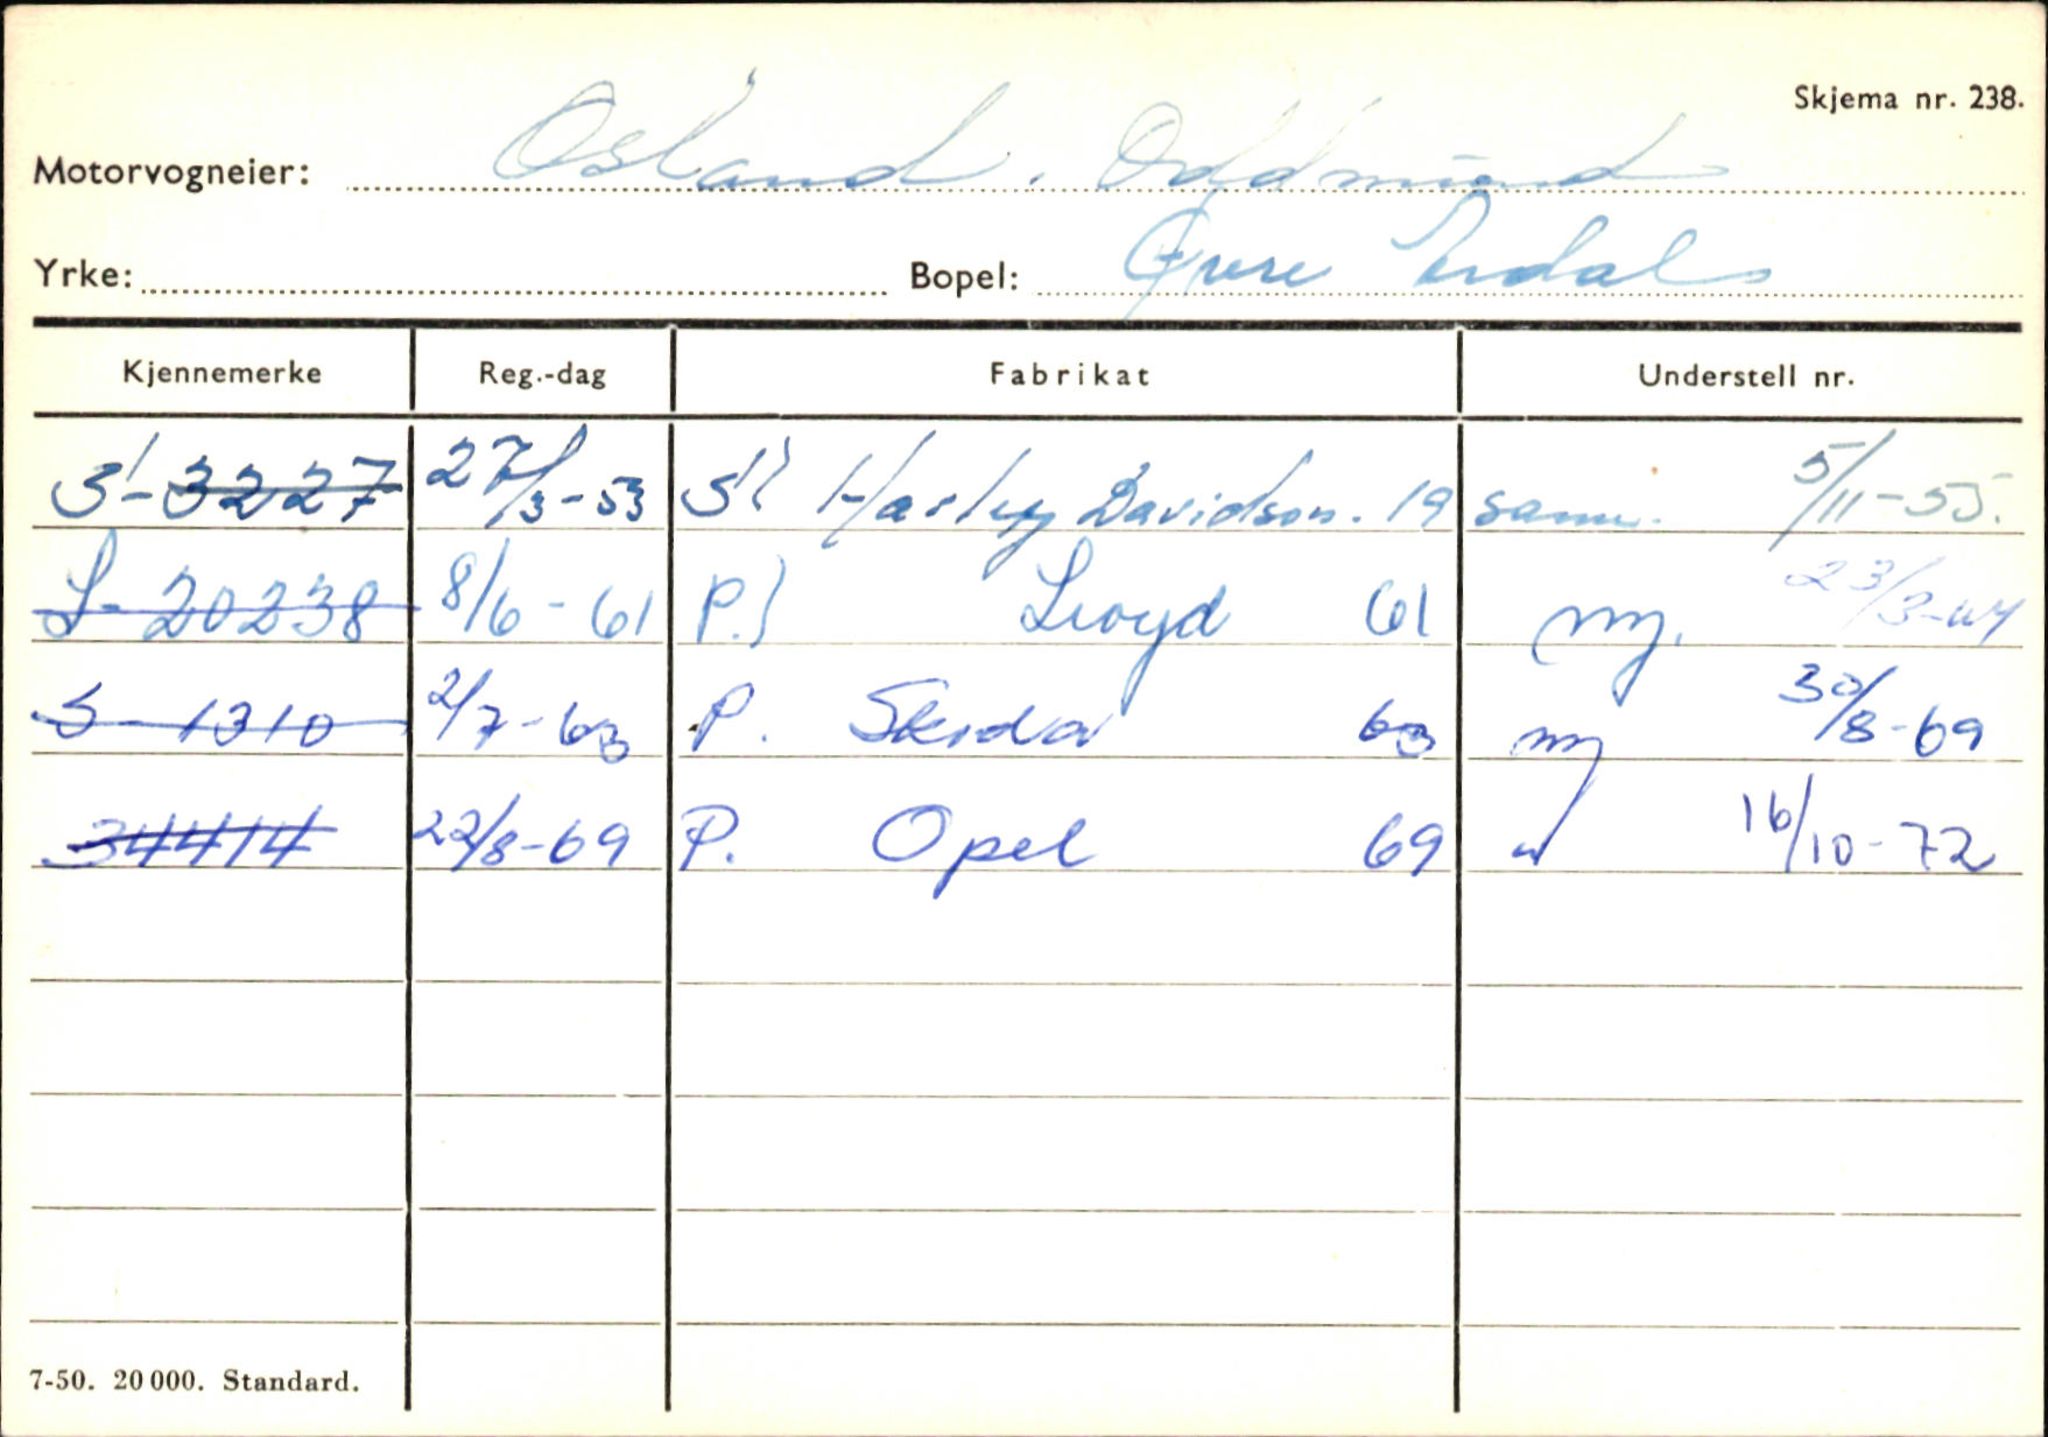 Skjema nr. 238.
Motorvogneier: Osland. Oddmund
Yrke: Bopel: Øvre Årdal
Kjennemerke Reg.-dag Fabrikat Understell nr.
S-3227 27/3-53 Harley Davidson. 19 samme. 5/11-55.
S-20238 8/6-61 P.) Lloyd 61 ny. 23/3-64
S-1310 2/7-63 P. Skoda 63 ny 30/8-69
34414 22/8-69 P. Opel 69 16/10-72
7-50. 20 000. Standard.